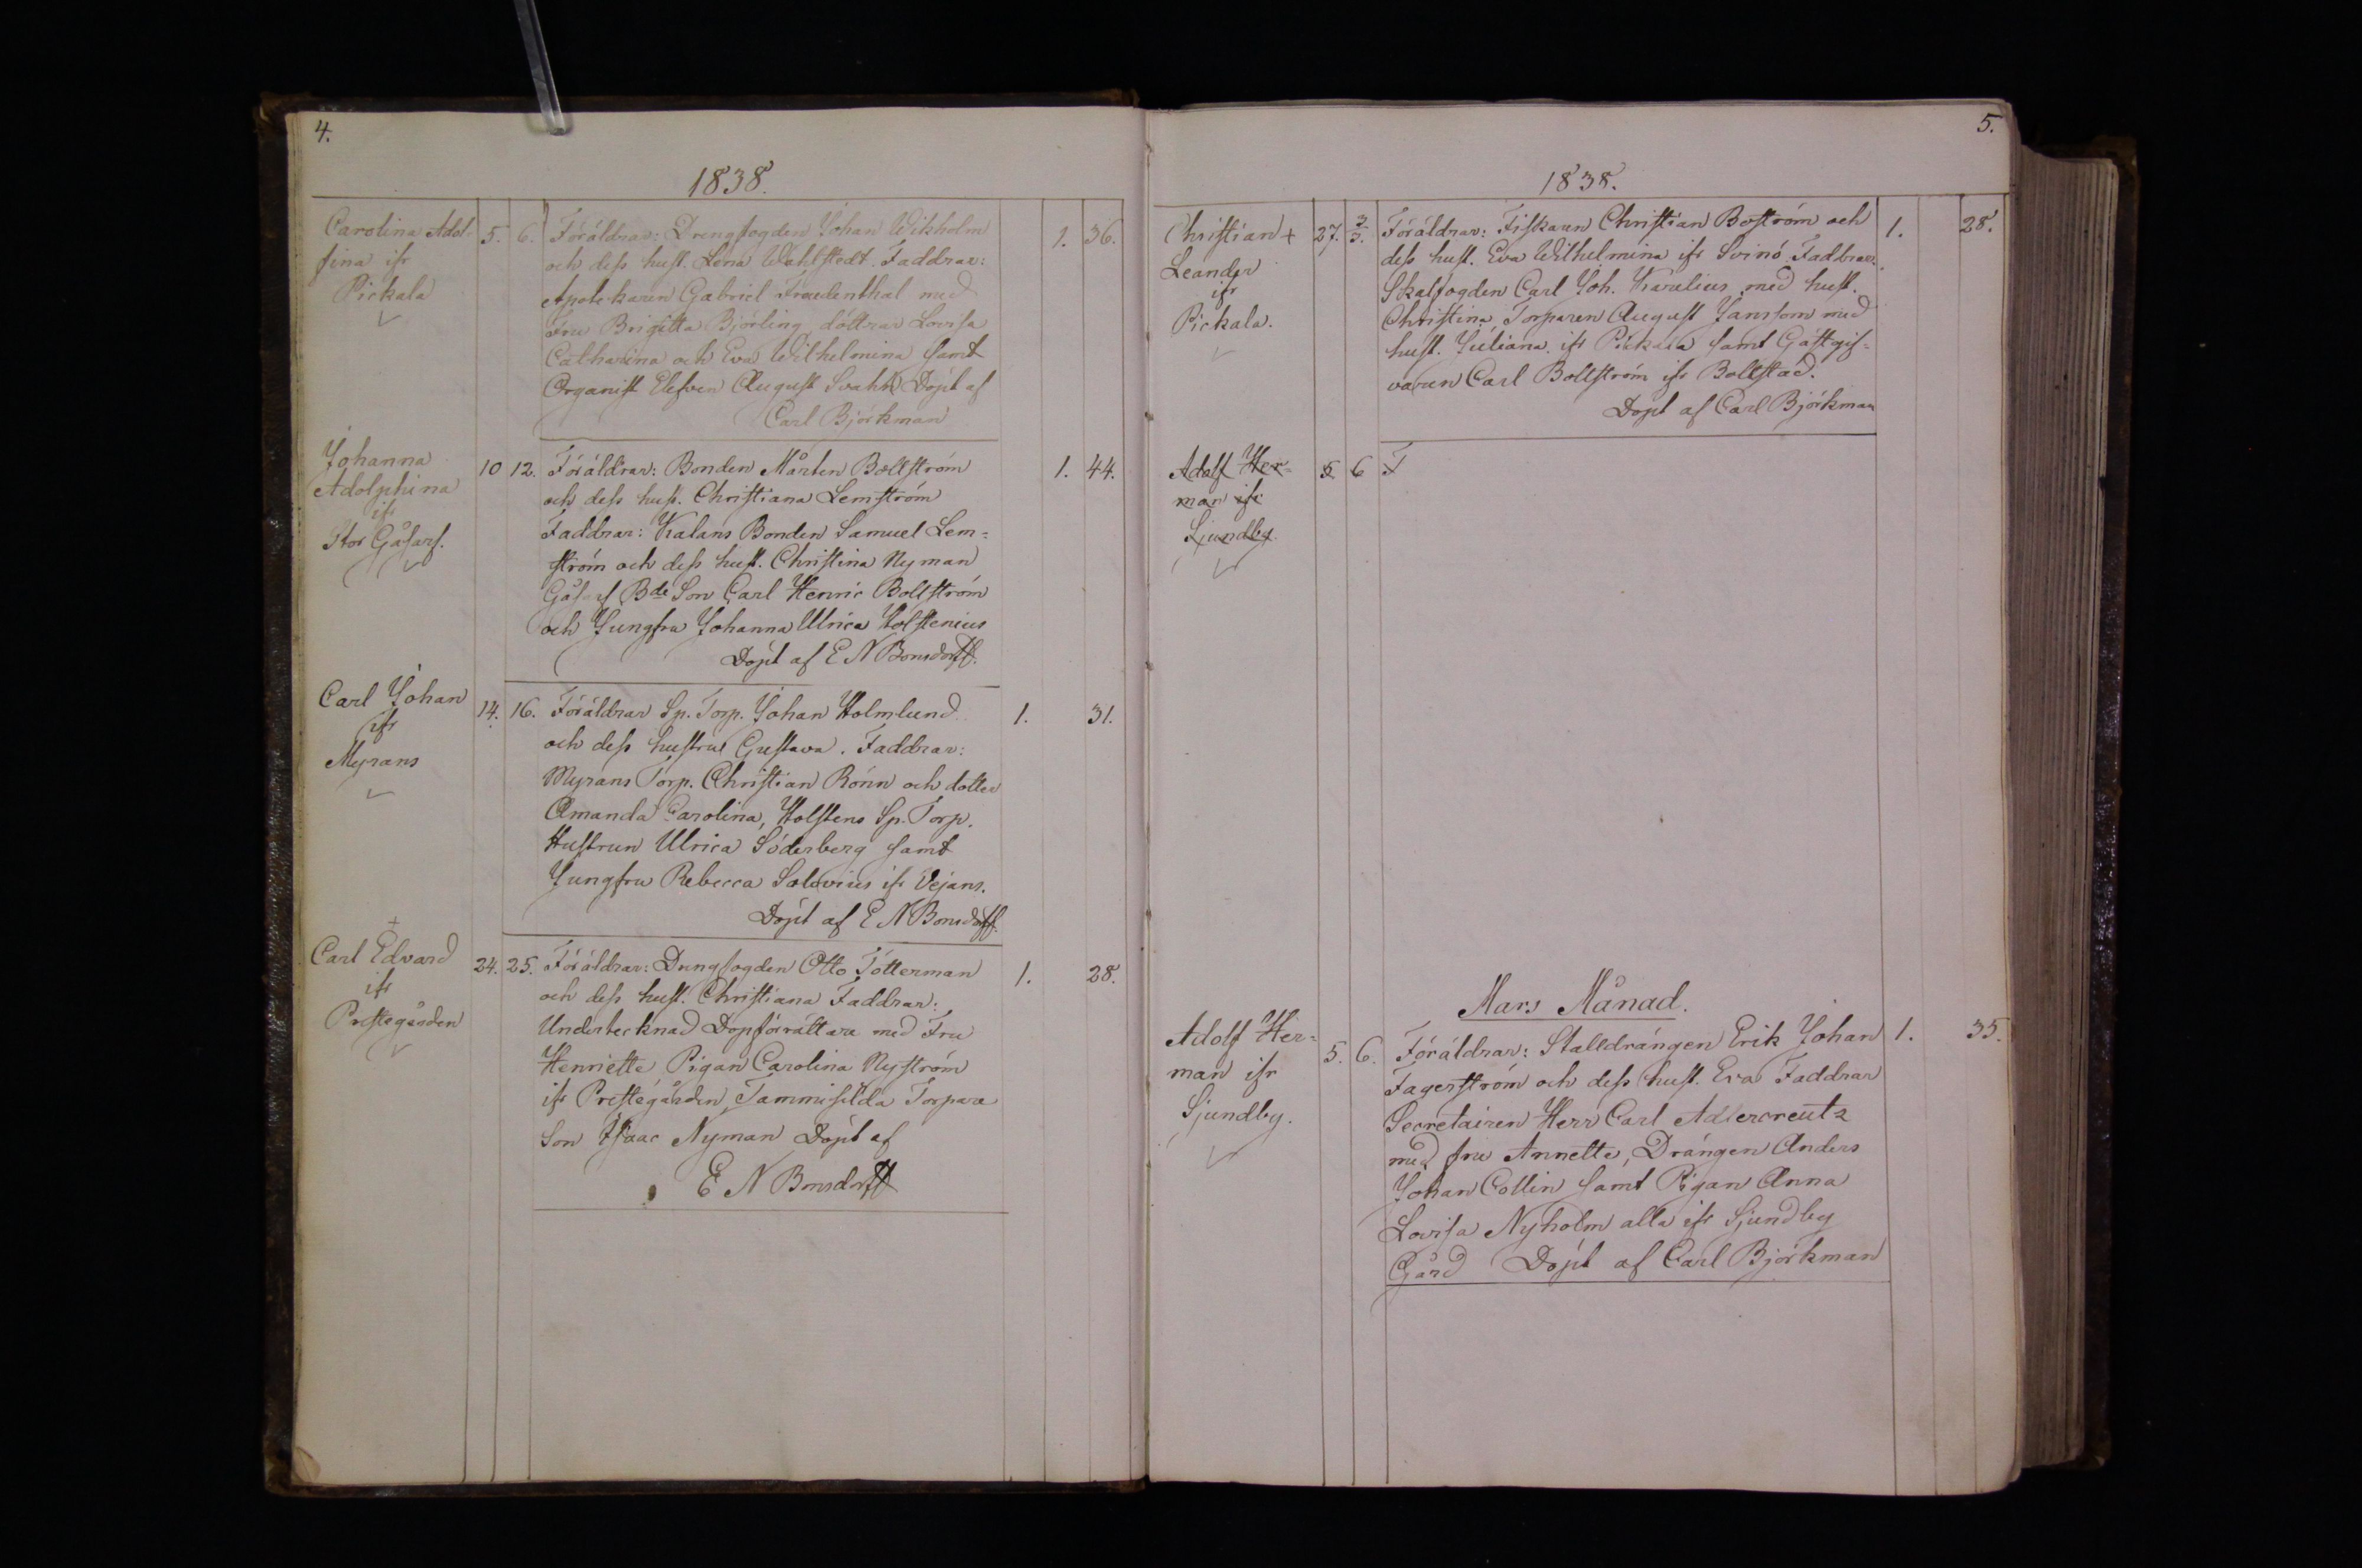 4.
1838.
Carolina Adol-
fina ifr
Pickala
5. 6. Föräldrar: Drengfogden Johan Wikholm
och dess hust. Lena Wahlstedt. Faddrar:
Apotekaren Gabriel Freudenthal med
Fru Brigitta Björling, döttrar Lovisa
Catharina och Eva Wilhelmina samt
Organist Elefven August Svahn Döpt af
Carl Björkman
1. 36.
Johanna
Adolphina
ifr
Stor Gåsarf.
10 12. Föräldrar: Bonden Mårten Bollström
och dess hust. Christiana Lemström
Faddrar: Kalans Bonden Samuel Lem=
ström och dess hust. Christina Nyman
Gåsarf Bde Son Carl Henric Bollström
och Jungfru Johanna Ulrica Holstenius
Döpt af E N Bonsdorff.
1. 44.
Carl Johan
ifr
Myrans
14. 16. Föräldrar Sp. Torp. Johan Holmlund
och dess hustru Gustava. Faddrar:
Myrans Torp. Christian Rönn och dotter
Amanda Carolina, Holstens Sp. Torp.
Hustrun Ulrica Söderberg samt
Jungfru Rebecca ifr Vejans.
Döpt af E N Bonsdorff.
1. 31.
+
Carl Edvard
ifr
Prestegården
24. 25. Föräldrar: Drengfogden Otto Tötterman
och dess hust. Christiana Faddrar:
Undertecknad Dopförrättare med Fru
Henriette, Pigan Carolina Nyström
ifr Prestegården, Tammisilda Torpare
Son Isaac Nyman Döpt af
E N Bonsdorff
1. 28.
5.
1838.
Christian +
Leander
ifr
Pickala.
27. 3/3. Föräldrar: Fiskaren Christian Boström och
dess hust. Eva Wilhelmina ifr Svinö. Faddrar:
Skalfogden Carl Joh. Karelius med hust.
Christina, Torparen August Jansson med
hust. Juliana ifr Pickala samt Gästgif=
varen Carl Bollström ifr Bollstad.
Döpt af Carl Björkman
1. 28.
Adolf Her=
man ifr
Sjundby.
5 6 F
Mars Månad.
Adolf Her=
man ifr
Sjundby.
5. 6. Föräldrar: Stalldrängen Erik Johan
Fagerström och dess hust. Eva Faddrar
Secretairen Herr Carl Adlercreutz
med fru Annette, Drängen Anders
Johan Collin samt Pigan Anna
Lovisa Nyholm alla ifr Sjundby
Gård Döpt af Carl Björkman
1. 35.